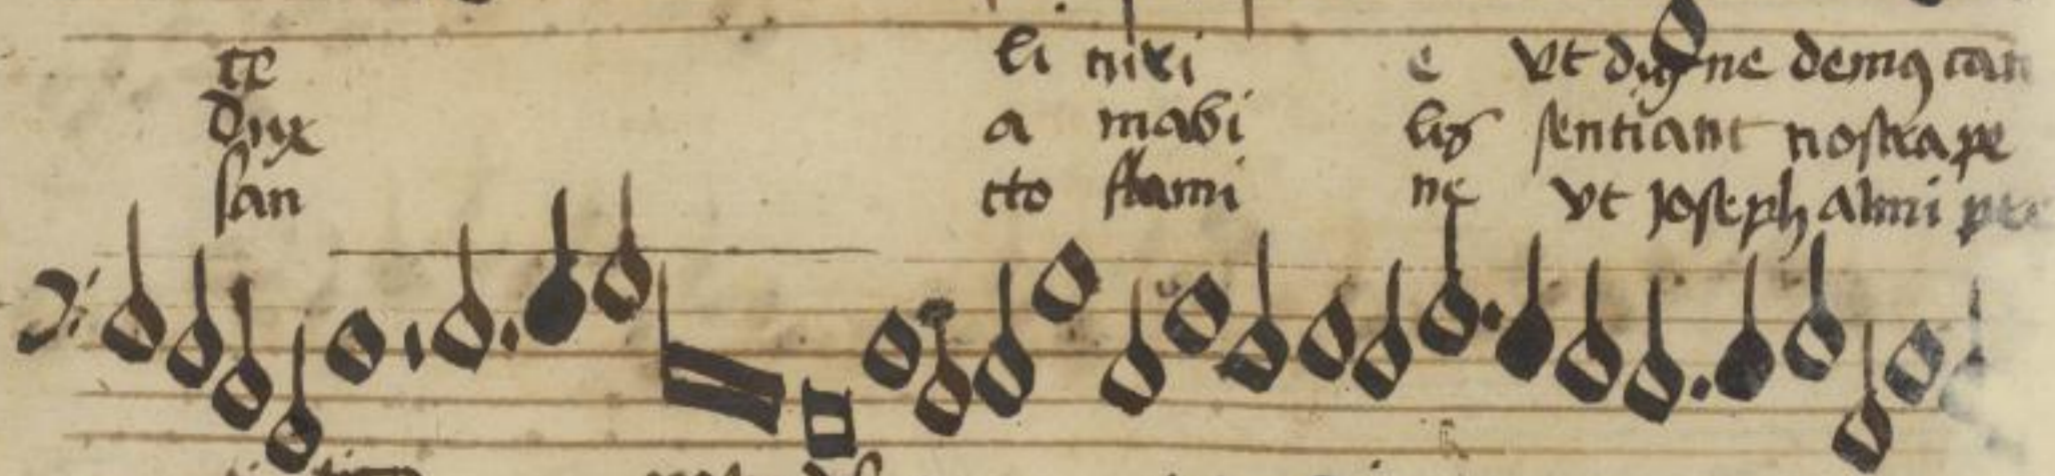 te li nixi e Vt digne demꝰ can
dux a mabi lis sentiant nostra pe
san cto flami ne Vt Joseph almi